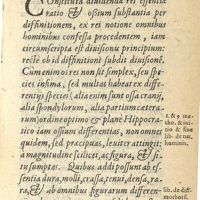 Constituta dividenda rei essentia
ratio & ossium substantia per
diffinitionem, ex rei notione omnibus
hominibus confessa procedentem, iam
circumscripta est divisionis principium:
recte ob id diffinitioni subdit divisione.
Cum enim os res non sit simplex, seu spe
cies infima, sed multas habeat ex diffe-
rentijs species: alia siquidem ossa cranij,
alia spondylorum, alia partium cætera-
rum) ordine optimo & plane Hippocra
tico iam ossium differentias, non omnes
quidem, sed præcipuas, leuiter attingit:
à magnitudine scilicet, ac figura, & si-
tu sumptas. Quibus addi possunt ab es-
sentia dura, molli, crassa, tenui, densa, ra-
ra, & ab omnibus figurarum differen-
1. & 9 me-
tho. & ini-
tio & fine
lib. de nat.
hominis.
lib. de diff.
morbord.